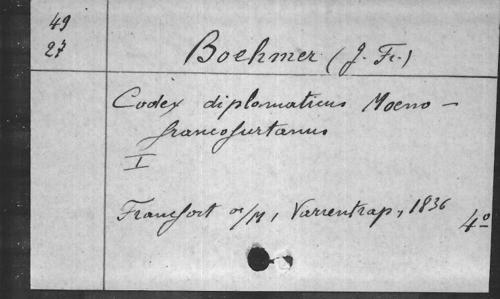 49
27
Boehmer (J. Fr.)
Codex diplomaticus Moeno-
francofurtanus
I
Francfort s/M, Varrentrap, 1836
4º